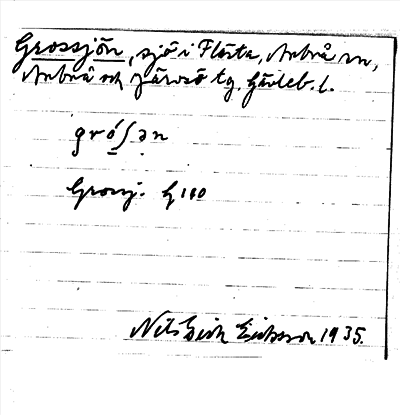 Grossjön, sjö i Flästa, Arbrå sn,
Arbrå och Järvsö tg. Gävleb. l.
gróʃən
Grossj. G 110
Nils Erik Eriksson 1935.